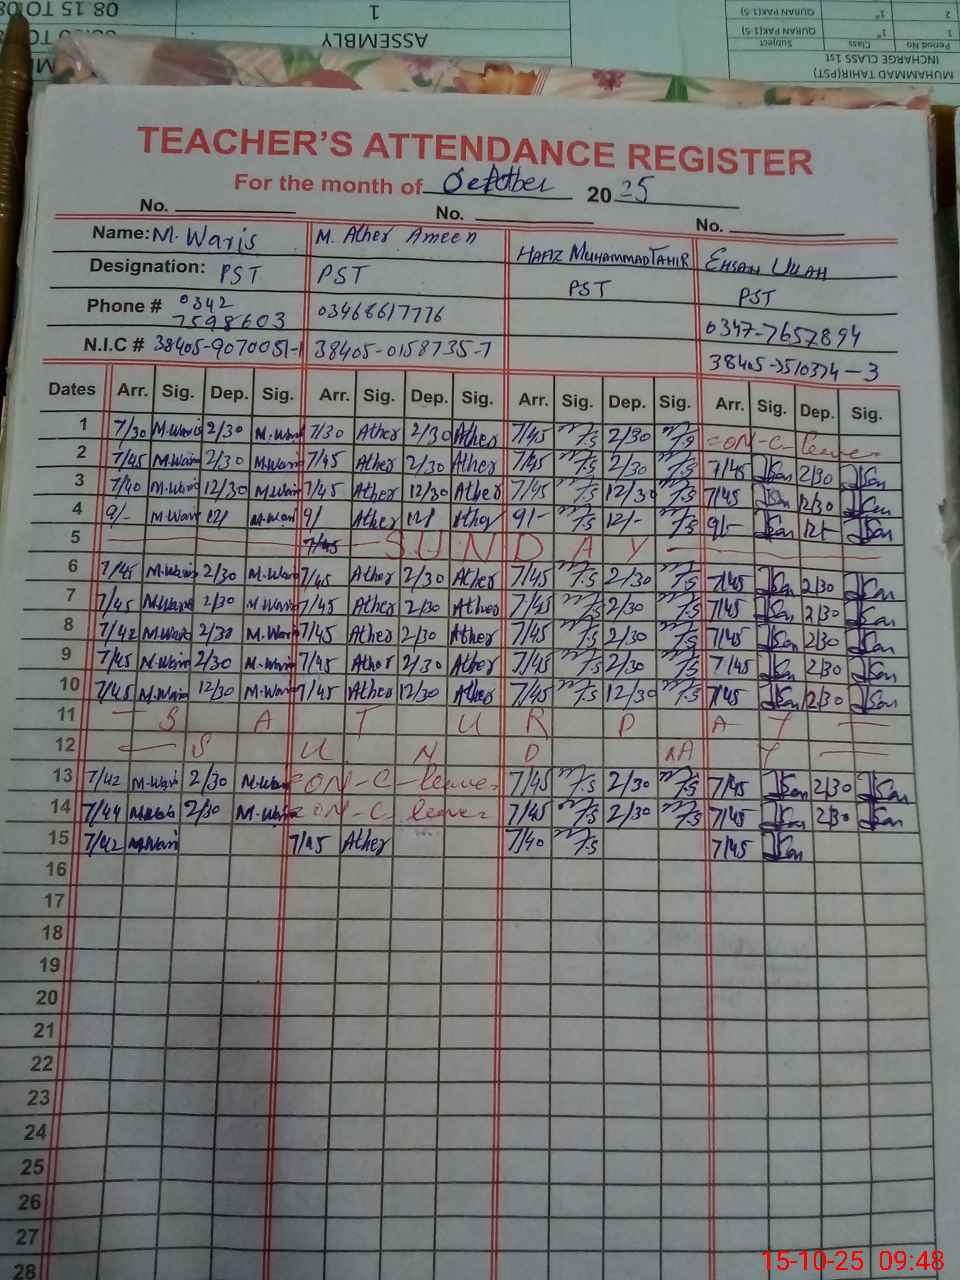 08.15 TO
ASSEMBLY
1
QURAN PAK(1-5) 1st 2
QURAN PAK(1-5) 1st 1
Subject Class Period No
INCHARGE CLASS 1st
MUHAMMAD TAHIR(PST)
TEACHER'S ATTENDANCE REGISTER
For the month of October 2025
No. No. No.
Name: M. Waris M. Ather Ameen HAFIZ MUHAMMAD TAHIR EHSAN ULLAH
Designation: PST PST PST PST
Phone # 0342 7598603 03468617776 0347-7657894
N.I.C # 38405-9070051-1 38405-0158735-7 38405-3510374-3
Dates Arr. Sig. Dep. Sig. Arr. Sig. Dep. Sig. Arr. Sig. Dep. Sig. Arr. Sig. Dep. Sig.
1 7/30 M.Waris 2/30 M.Waris 7/30 Ather 2/30 Ather 7/45 2/30 ON-C-leave
2 7/45 M.Waris 2/30 M.Waris 7/45 Ather 2/30 Ather 7/45 2/30 7/45 2/30
3 7/40 M.Waris 12/30 M.Waris 7/45 Ather 12/30 Ather 7/45 12/30 7/45 12/30
4 9/- M.Waris 12/ M.Waris 9/ Ather 12/ Ather 9/- 12/- 9/- 12/
5 7/45 SUNDAY
6 7/45 M.Waris 2/30 M.Waris 7/45 Ather 2/30 Ather 7/45 2/30 7/45 2/30
7 7/45 M.Waris 2/30 M.Waris 7/45 Ather 2/30 Ather 7/45 2/30 7/45 2/30
8 7/42 M.Waris 2/30 M.Waris 7/45 Ather 2/30 Ather 7/45 2/30 7/45 2/30
9 7/45 M.Waris 2/30 M.Waris 7/45 Ather 2/30 Ather 7/45 2/30 7/45 2/30
10 7/45 M.Waris 12/30 M.Waris 7/45 Ather 12/30 Ather 7/45 12/30 7/45 2/30
11 SATURDAY
12 SUNDAY
13 7/42 M.Waris 2/30 M.Waris ON-C-leave 7/45 2/30 7/45 2/30
14 7/44 M.Waris 2/30 M.Waris ON-C-leave 7/45 2/30 7/45 2/30
15 7/42 M.Waris 7/45 Ather 7/40 7/45
16
17
18
19
20
21
22
23
24
25
26
27
28
15-10-25 09:48